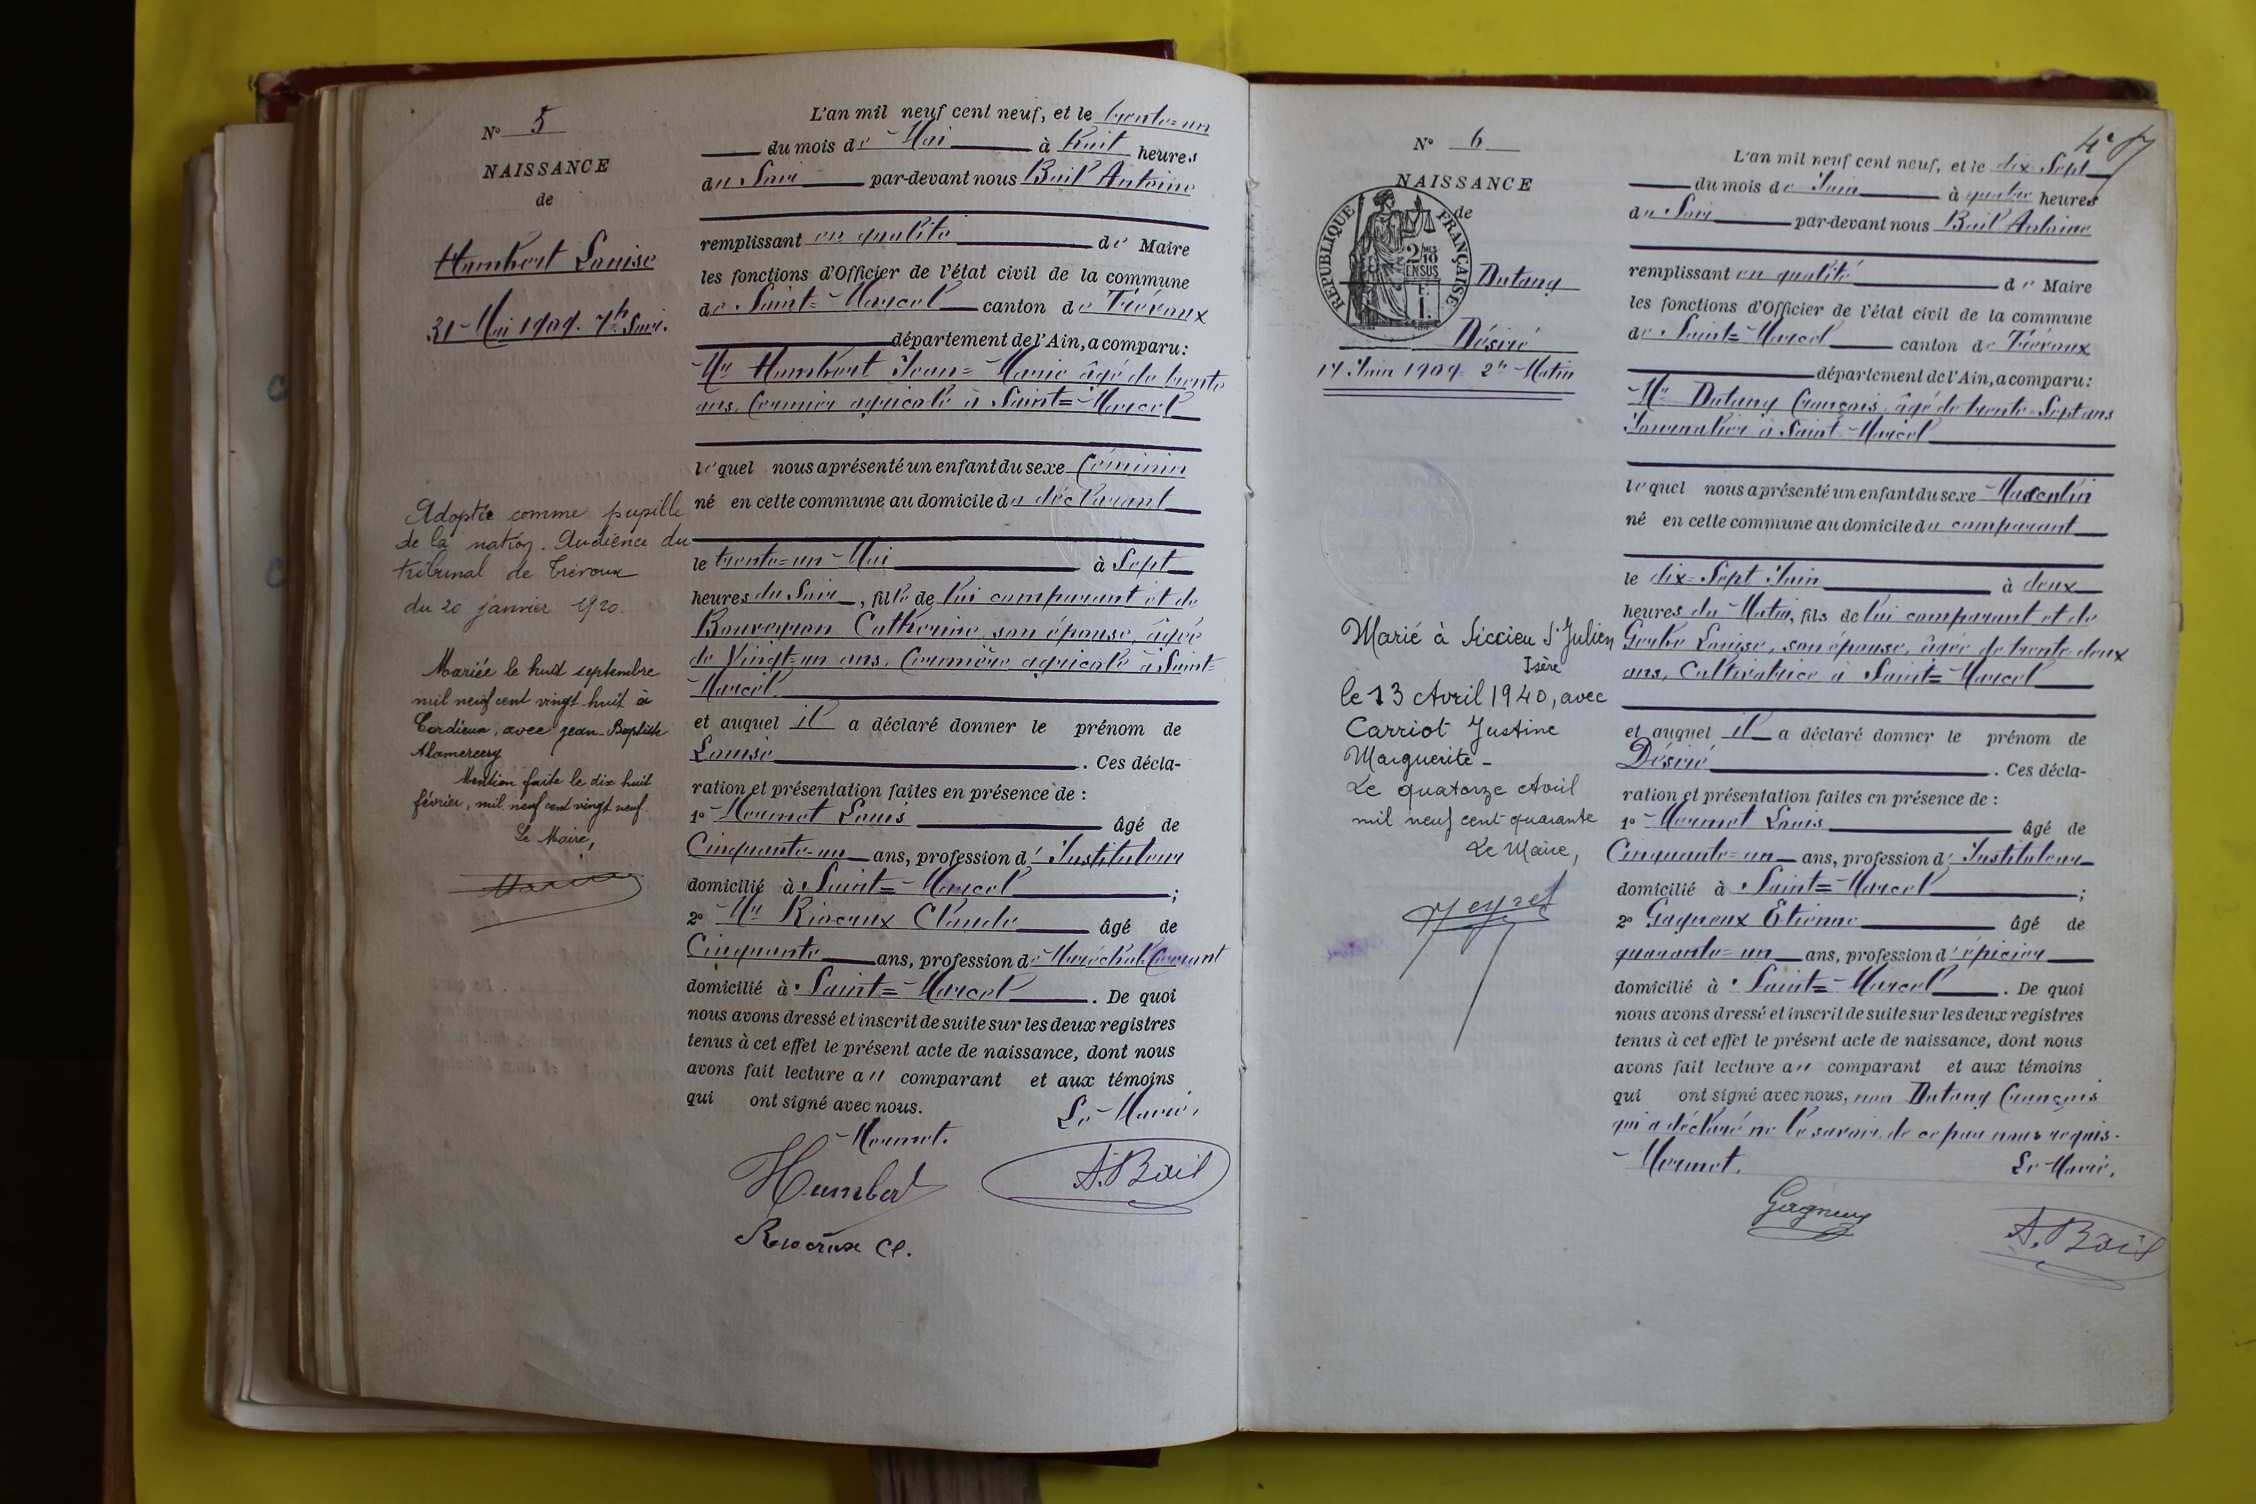 N° 5
NAISSANCE
de
Humbert Louise
31 Mai 1909. 7h Soir.
Adoptée comme pupille
de la nation. Audience du
tribunal de Trévoux
du 20 janvier 1920.
Mariée le huit septembre
mil neuf cent vingt huit à
Cordieux, avec Jean-Baptiste
Alamercery
Mention faite le dix huit
février, mil neuf cent vingt neuf.
Le Maire,
L'an mil neuf cent neuf, et le trente-un
du mois de Mai à huit heures
du Soir par-devant nous Bail Antoine
remplissant en qualité de Maire
les fonctions d'Officier de l'état civil de la commune
de Saint-Marcel canton de Trévoux
département de l'Ain, a comparu :
Mr Humbert Jean-Marie âgé de trente
ans, Fermier agricole à Saint-Marcel
lequel nous a présenté un enfant du sexe féminin
né en cette commune au domicile du déclarant
le trente-un Mai à Sept
heures du Soir, fille de lui comparant et de
Bouveyron Catherine, son épouse, âgée
de Vingt-un ans, Fermière agricole à Saint-
Marcel
et auquel il a déclaré donner le prénom de
Louise . Ces décla-
ration et présentation faites en présence de :
1° Mermet Louis âgé de
Cinquante-un ans, profession d'Instituteur
domicilié à Saint-Marcel ;
2° Mr Rivoeux Claude âgé de
Cinquante ans, profession de Maréchal-ferrant
domicilié à Saint-Marcel . De quoi
nous avons dressé et inscrit de suite sur les deux registres
tenus à cet effet le présent acte de naissance, dont nous
avons fait lecture au comparant et aux témoins
qui ont signé avec nous.
Le Maire,
Mermet.
Humbert
A. Bail
N° 6
NAISSANCE
de
RÉPUBLIQUE FRANÇAISE
2/10 EN SUS
Dutang
Désiré
17 Juin 1909 2h Matin
Marié à Siccieu St Julien
Isère
le 13 Avril 1940, avec
Carriot Justine
Marguerite -
Le quatorze Avril
mil neuf cent quarante
Le Maire,
Meyret
L'an mil neuf cent neuf, et le dix-Sept
du mois de Juin à quatre heures
du Soir par-devant nous Bail Antoine
remplissant en qualité de Maire
les fonctions d'Officier de l'état civil de la commune
de Saint-Marcel canton de Trévoux
département de l'Ain, a comparu :
Mr Dutang François, âgé de trente-Sept ans
Journalier à Saint-Marcel
lequel nous a présenté un enfant du sexe Masculin
né en cette commune au domicile du comparant
le dix-Sept Juin à deux
heures du Matin, fils de lui comparant et de
Louise, son épouse, âgée de trente-deux
ans, Cultivatrice à Saint-Marcel
et auquel il a déclaré donner le prénom de
Désiré . Ces décla-
ration et présentation faites en présence de :
1° Mermet Louis âgé de
Cinquante-un ans, profession d'Instituteur
domicilié à Saint-Marcel ;
2° Gagneux Etienne âgé de
quarante-un ans, profession d'épicier
domicilié à Saint-Marcel . De quoi
nous avons dressé et inscrit de suite sur les deux registres
tenus à cet effet le présent acte de naissance, dont nous
avons fait lecture au comparant et aux témoins
qui ont signé avec nous, non Dutang François
qui a déclaré ne le savoir, de ce par nous requis.
Mermet. Le Maire,
Gagneux
A. Bail